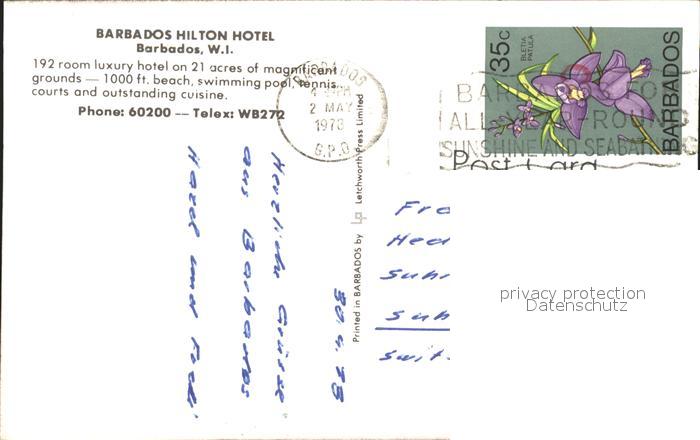 BARBADOS HILTON HOTEL
Barbados, W.I.
192 room luxury hotel on 21 acres of magnificent
grounds — 1000 ft. beach, swimming pool, tennis
courts and outstanding cuisine.
Phone: 60200 — Telex: WB272
BARBADOS
2 MAY
1978
G.P.O.
35c
BLETIA
PATULA
BARBADOS
BAR
ALL ROUND
SUNSHINE AND SEABATH
Post Card
Printed in BARBADOS by Letchworth Press Limited
30.4.78
Herzliche Grüsse
aus Barbados
Hazel und
Fr
Hea
Suh
Suh
Swit
privacy protection
Datenschutz